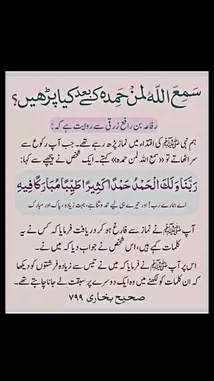 سَمِعَ اللّٰہُ لِمَنْ حَمِدَہ کے بعد کیا پڑھیں؟
رفاعہ بن رافع زرقی سے روایت ہے کہ:
ہم نبی ﷺ کی اقتداء میں نماز پڑھ رہے تھے۔ جب آپ رکوع سے
سر اٹھاتے تو «سمع اللہ لمن حمدہ» کہتے۔ ایک شخص نے پیچھے سے کہا:
رَبَّنَا وَلَكَ الْحَمْدُ حَمْدًا كَثِيرًا طَيِّبًا مُبَارَكًا فِيهِ
اے ہمارے رب! اور تیرے ہی لیے حمد و ثنا ہے، بہت زیادہ، پاک اور مبارک
آپ ﷺ نے نماز سے فارغ ہو کر دریافت فرمایا کہ کس نے یہ
کلمات کہے ہیں، اس شخص نے جواب دیا کہ میں نے۔
اس پر آپ ﷺ نے فرمایا کہ میں نے تیس سے زیادہ فرشتوں کو دیکھا
کہ ان کلمات کو لکھنے میں وہ ایک دوسرے پر سبقت لے جانا چاہتے تھے۔
صحیح بخاری ۷۹۹